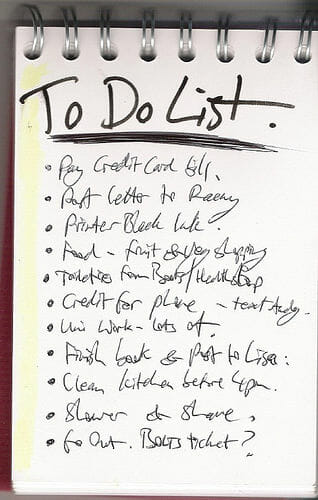 To Do List.
• Pay Credit Card bills.
• Post letter to Raeny
• Printer Black Ink.
• Food - fruit & veg shopping
• Toiletries from Boots/Health Shop
• Credit for phone - text Andy.
• Uni Work - lots of.
• Finish book & Post to Lisa:
• Clean kitchen before 4pm.
• Shower & Shave.
• Go Out. Bolts ticket?